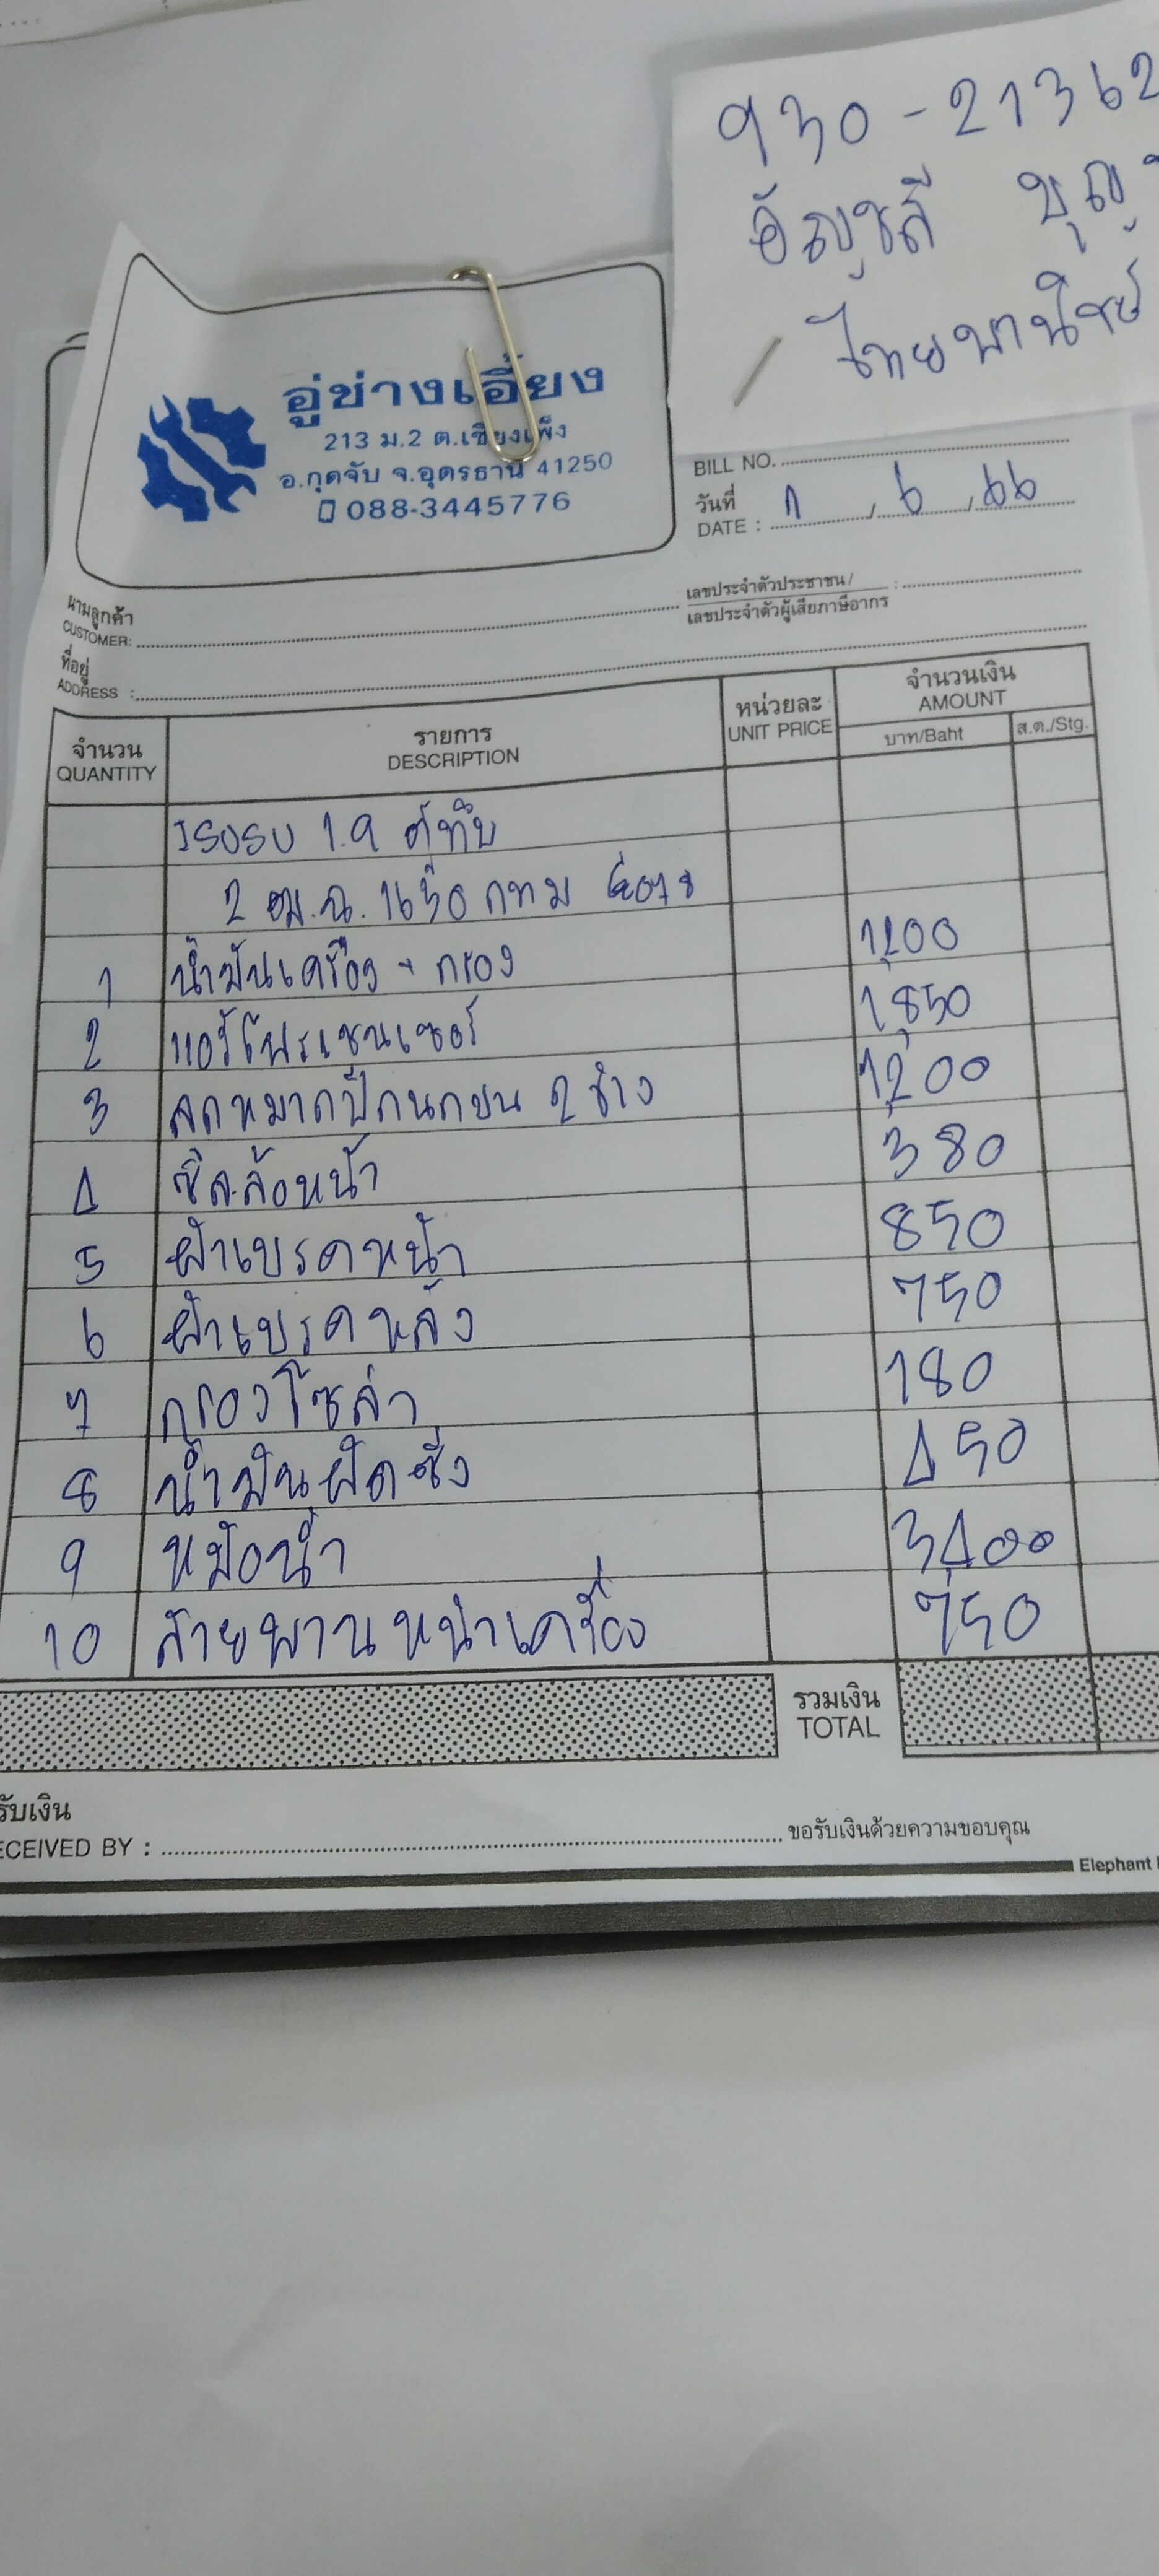 930-21362
อัญชลี บุญ
ไทยพานิชย์
อู่ช่างเอี้ยง
213 ม.2 ต.เชียงเพ็ง
อ.กุดจับ จ.อุดรธานี 41250
088-3445776
BILL NO.
วันที่
DATE : 7 / 6 / 66
นามลูกค้า
CUSTOMER:
เลขประจำตัวประชาชน /
เลขประจำตัวผู้เสียภาษีอากร :
ที่อยู่
ADDRESS :
จำนวน QUANTITY รายการ DESCRIPTION หน่วยละ UNIT PRICE จำนวนเงิน AMOUNT
บาท/Baht ส.ต./Stg.
ISUSU 1.9 ตู้ทึบ
2 ฒ.ฉ. 1650 กทม
1 น้ำมันเครื่อง + กรอง 1,200
2 แอร์โฟรเซนเซอร์ 1,850
3 ลูกหมากปีกนกบน 2 ข้าง 1,200
4 ซีลล้อหน้า 380
5 ผ้าเบรคหน้า 850
6 ผ้าเบรคหลัง 750
7 กรองโซล่า 180
8 น้ำมันฝัดซิ่ง 450
9 หม้อน้ำ 3400
10 สายพานหน้าเครื่อง 750
รวมเงิน
TOTAL
รับเงิน
ECEIVED BY : ขอรับเงินด้วยความขอบคุณ
Elephant